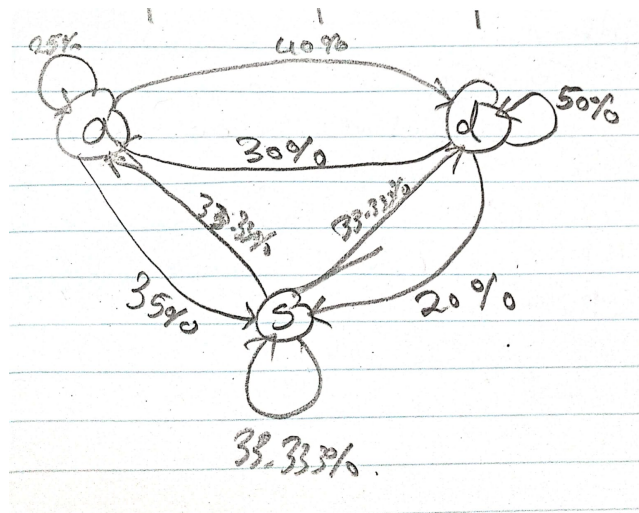 25%
40%
a
d
50%
30%
33.33%
33.33%
35%
S
20%
33.333%.